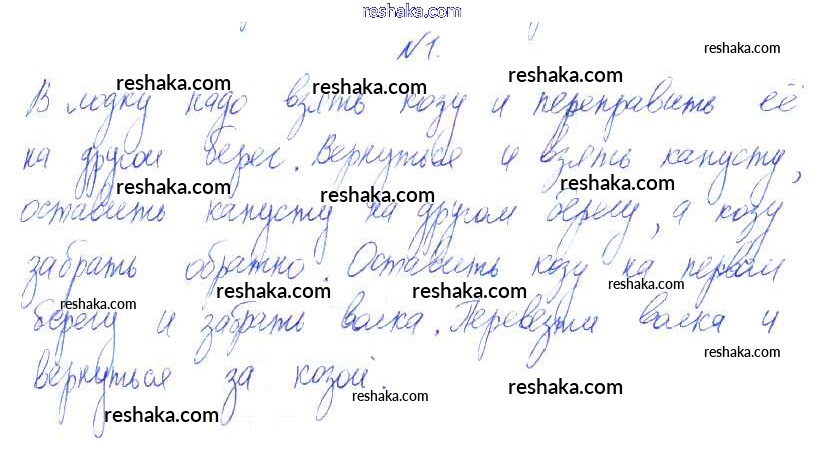 reshaka.com
№1.
reshaka.com
reshaka.com
reshaka.com
reshaka.com
В лодку надо взять козу и переправить её
reshaka.com
на другой берег. Вернуться и взять капусту,
reshaka.com
reshaka.com
reshaka.com
оставить капусту на другом берегу, а козу
забрать обратно. Оставить козу на первом
reshaka.com
reshaka.com
reshaka.com
reshaka.com
берегу и забрать волка. Перевезти волка и
reshaka.com
вернуться за козой.
reshaka.com
reshaka.com
reshaka.com